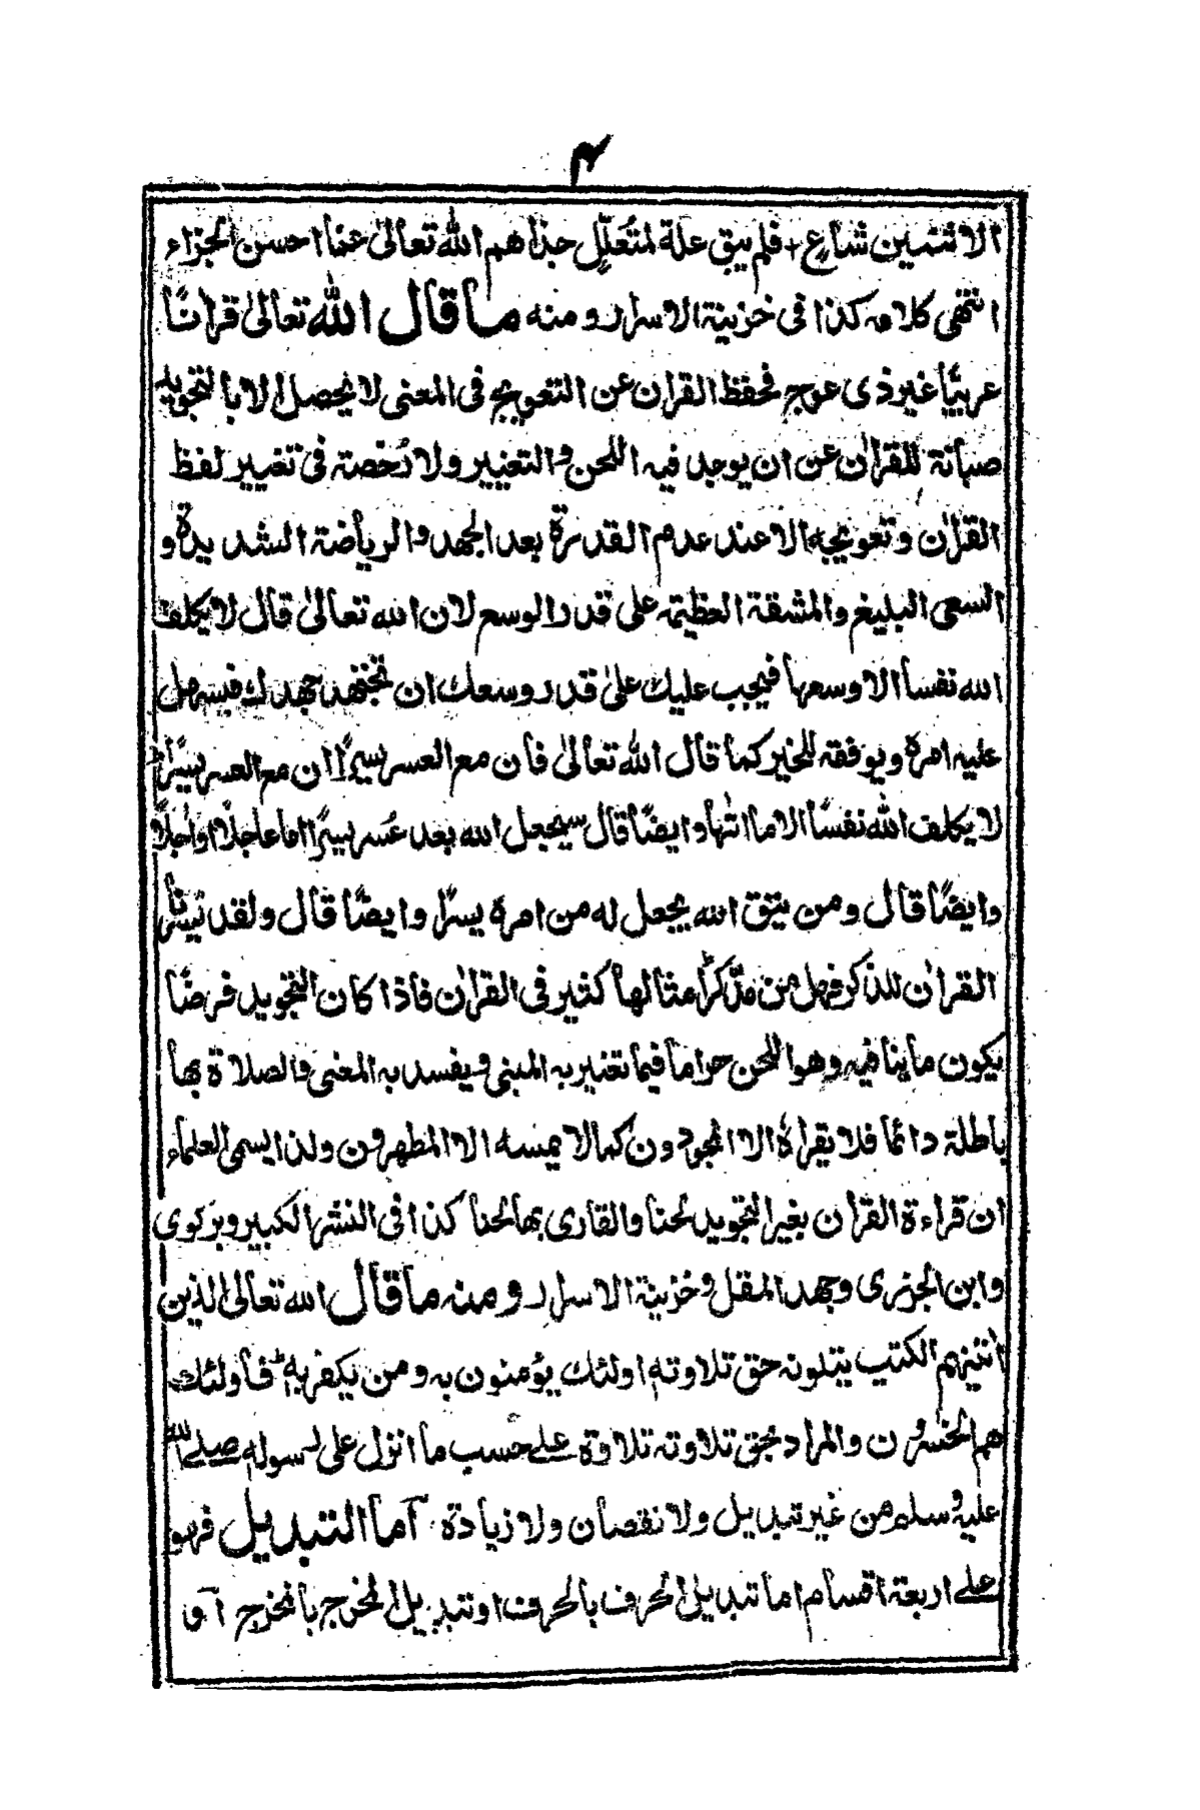 ۴
الاثنين شاع + فلم يبق علة لمتعلّل جذاهم الله تعالىٰ عنا احسن الجزاء
انتهى كلامه كذا فى خزينة الاسرار ومنه ما قال الله تعالىٰ قرانًا
عربيًّا غير ذى عوج فحفظ القران عن التعويج فى المعنى لا يحصل الا بالتجويد
صيانة للقران عن ان يوجد فيه اللحن والتغيير ولا رُخصة فى تغيير لفظ
القراٰن وتعويجه الا عند عدم القدرة بعد الجهد والرياضة الشديدة و
السعى البليغ والمشقة العظيمة على قدر الوسع لان الله تعالىٰ قال لا يكلف
الله نفسا الا وسعها فيجب عليك علىٰ قدر وسعك ان تجتهد جهدك فيسهل
عليه امره ويوفقه للخير كما قال الله تعالىٰ فان مع العسر يسرًا ان مع العسر يسرًا
لا يكلف الله نفسًا الا ما اتٰها وايضًا قال سيجعل الله بعد عسر يسرًا اما عاجلًا او اٰجلًا
وايضًا قال ومن يتق الله يجعل له من امره يسرًا وايضًا قال ولقد يسّرنا
القراٰن للذكر فهل من مدّكر امثالها كثير فى القراٰن فاذا كان التجويد فرضًا
يكون ما ينافيه وهو اللحن حراما فيما تغير به المبنى ويفسد به المعنى والصلاة بها
باطلة دائما فلا يقراه الا المجودون كما لا يمسه الا المطهرون ولذا يسمى العلماء
ان قراءة القران بغير التجويد لحنا والقارى بها لحنا كذا فى النشر الكبير وبركوى
وابن الجزرى وجهد المقل وخزينة الاسرار ومنه ما قال الله تعالىٰ الذين
اٰتينهم الكتب يتلونه حق تلاوته اولئك يؤمنون به ومن يكفر به فاولئك
هم الخسرون والمراد بحق تلاوته تلاوة علے حسب ما انزل على رسوله صلے الله
عليه وسلم من غير تبديل ولا نقصان ولا زيادة آما التبديل فهو
علے اربعة اقسام اما تبديل الحرف بالحرف او تبديل المخرج بالمخرج آو